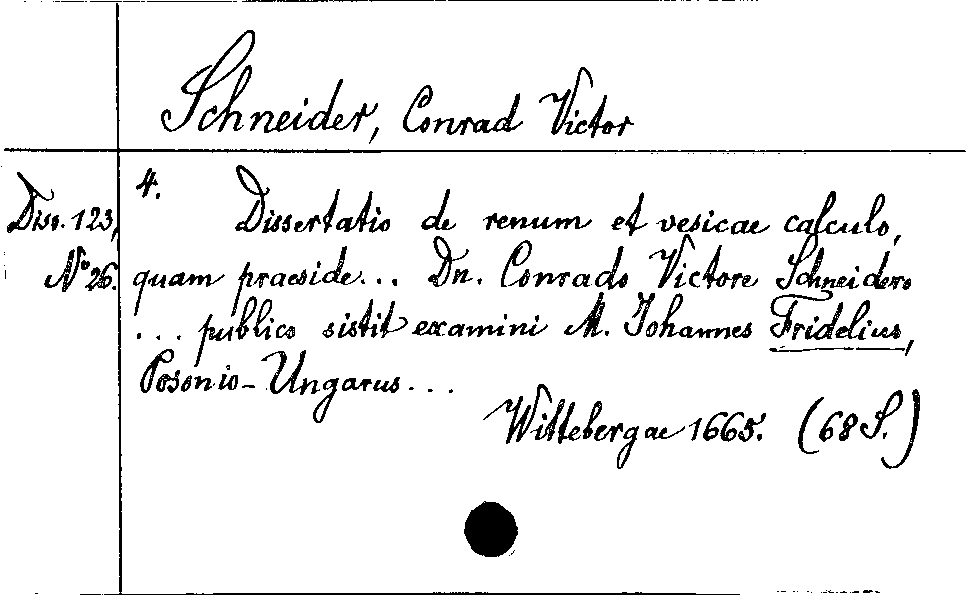 Schneider, Conrad Victor
Diss. 123,
No 26.
4. Dissertatio de renum et vesicae calculo,
quam praeside... Dn. Conrado Victore Schneidero
... publico sistit examini M. Johannes Fridelius,
Posonio-Ungarus...
Wittebergae 1665. (68 S.)